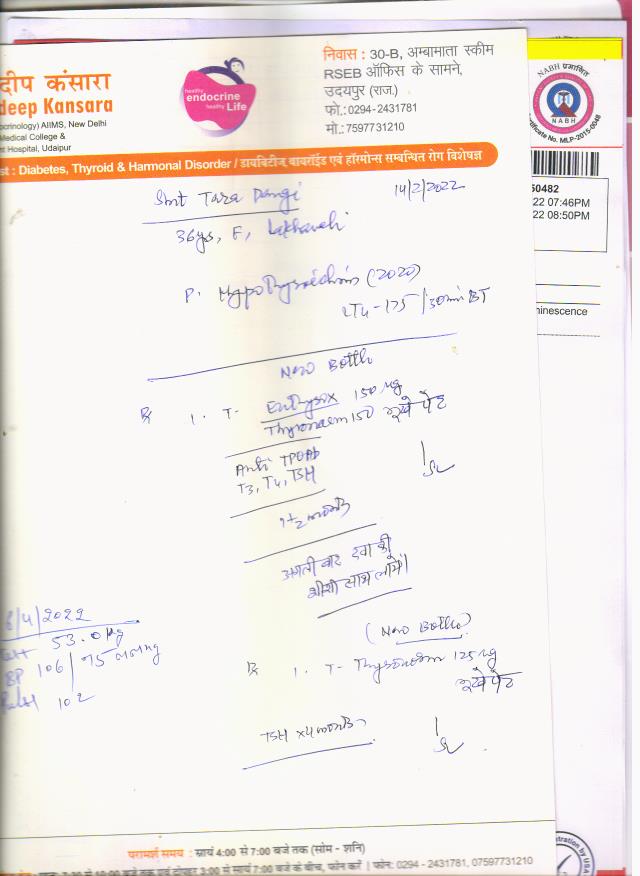 दीप कंसारा
deep Kansara
ocrinology) AIIMS, New Delhi
Medical College &
t Hospital, Udaipur
healthy
endocrine
healthy Life
निवास : 30-B, अम्बामाता स्कीम
RSEB ऑफिस के सामने,
उदयपुर (राज.)
फो.:0294-2431781
मो.:7597731210
st : Diabetes, Thyroid & Harmonal Disorder / डायबिटीज, थायरॉईड एवं हॉरमोन्स सम्बन्धित रोग विशेषज्ञ
NABH प्रमाणित
NABH
Certificate No. MLP-2015-0048
50482
22 07:46PM
22 08:50PM
ninescence
Smt Tara Dangi
14/2/2022
36ys, F,
P. Hypothyroidism (2020)
LT4-175 / 30min BT
New Bottle
Rx 1. T- Euthyrox 150 µg
Thyronorm 150 भूखे पेट
Anti TPOAb
T3, T4, TSH
1+2 months
अगली बार दवा की
शीशी साथ लायें।
6/4/2022
53.0 kg
BP 106/75 mmHg
102
(New Bottle)
Rx 1. T- Thyronorm 125 µg
भूखे पेट
TSH x4 months
परामर्श समय : सायं 4:00 से 7:00 बजे तक (सोम - शनि)
प्रातः 7:30 से 10:00 बजे तक एवं दोपहर 3:00 से सायं 7:00 बजे के बीच, फोन करें | फोन: 0294 - 2431781, 07597731210